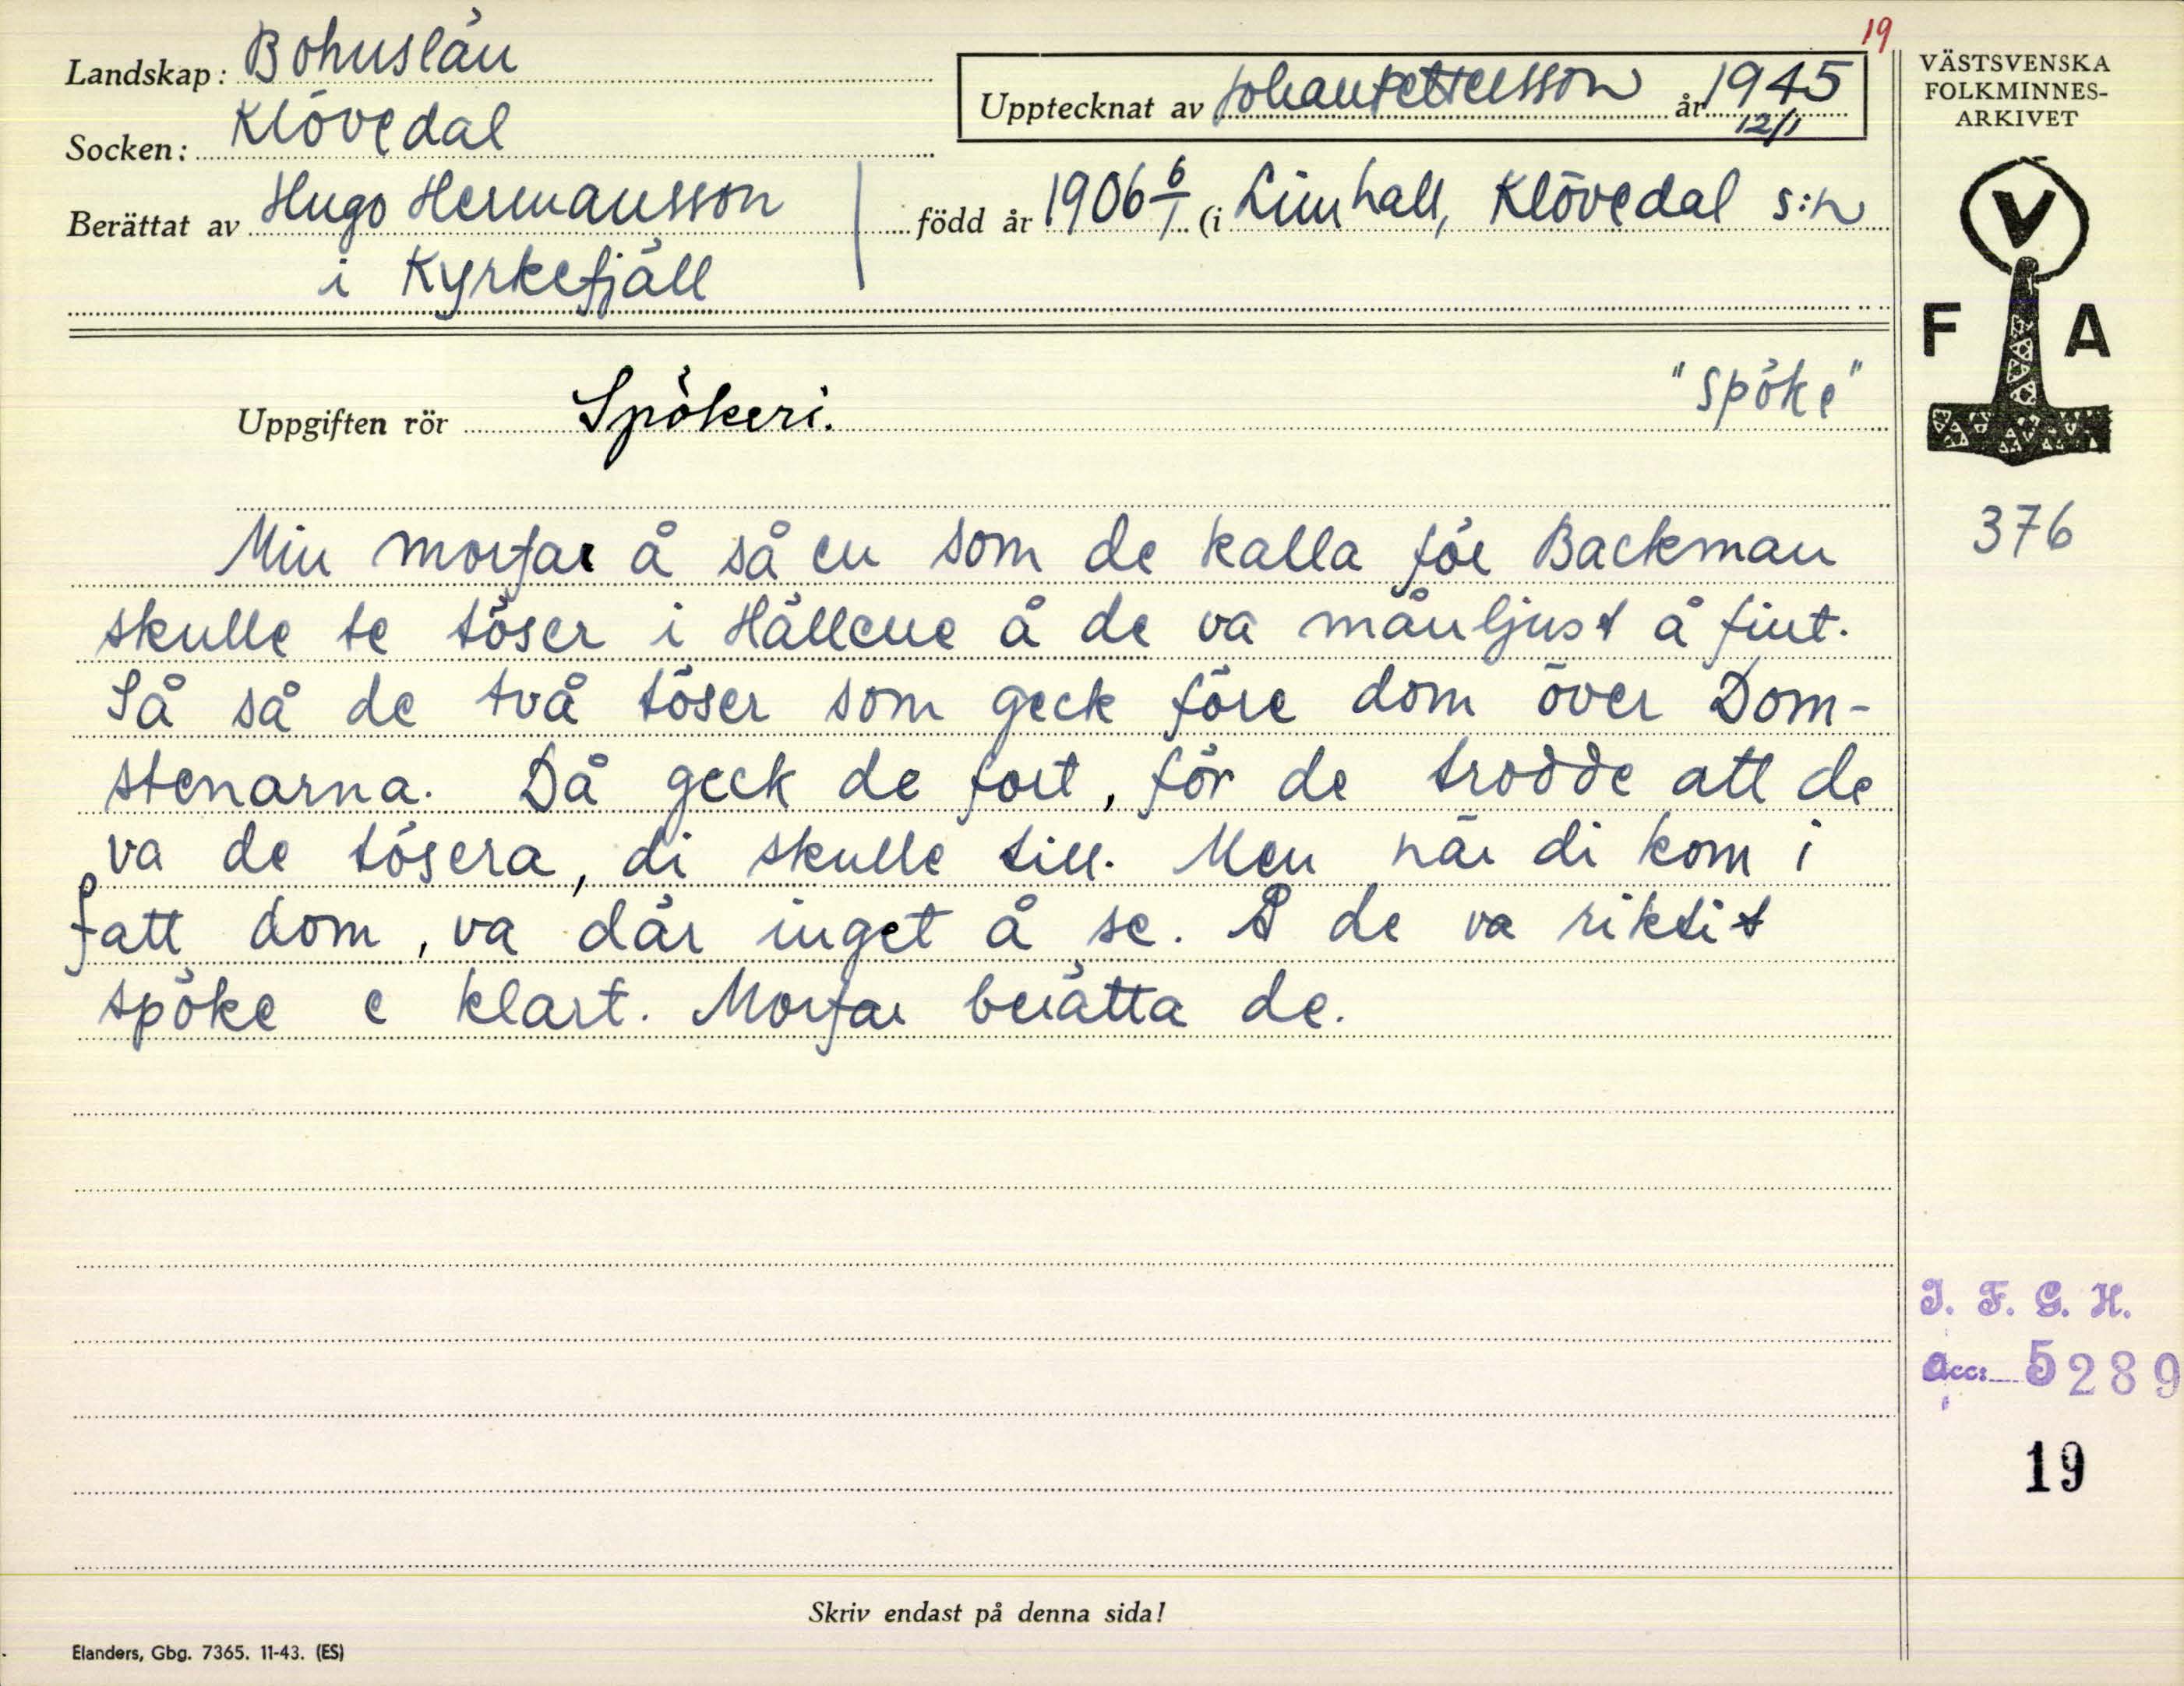 19
Landskap: Bohuslän
Upptecknat av Johan Pettersson år 1945
12/1
Socken: Klövedal
Berättat av Hugo Hermansson född år 1906 6/1 (i Limhall, Klövedal s:n
i Kyrkefjäll
Uppgiften rör Spökeri. "spöke"
Min morfar å så en som de kalla för Backman
skulle te töser i Hällene å de va månljust å fint.
Så så de två töser som geck före dom över Dom-
stenarna. Då geck de fort, för de trodde att de
va de tösera, di skulle till. Men när di kom i
fatt dom, va där inget å se. Å de va riktit
spöke e klart. Morfar berätta de.
Skriv endast på denna sida!
Elanders, Gbg. 7365. 11-43. (ES)
VÄSTSVENSKA
FOLKMINNES-
ARKIVET
V
F A
376
I. F. G. H.
Acc: 5289
19